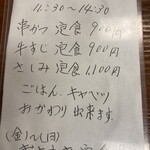 11:30〜14:30
串かつ定食 900円
牛すじ定食 900円
さしみ定食 1,100円
ごはん、キャベツ
おかわり出来ます。
(金)〜(日)